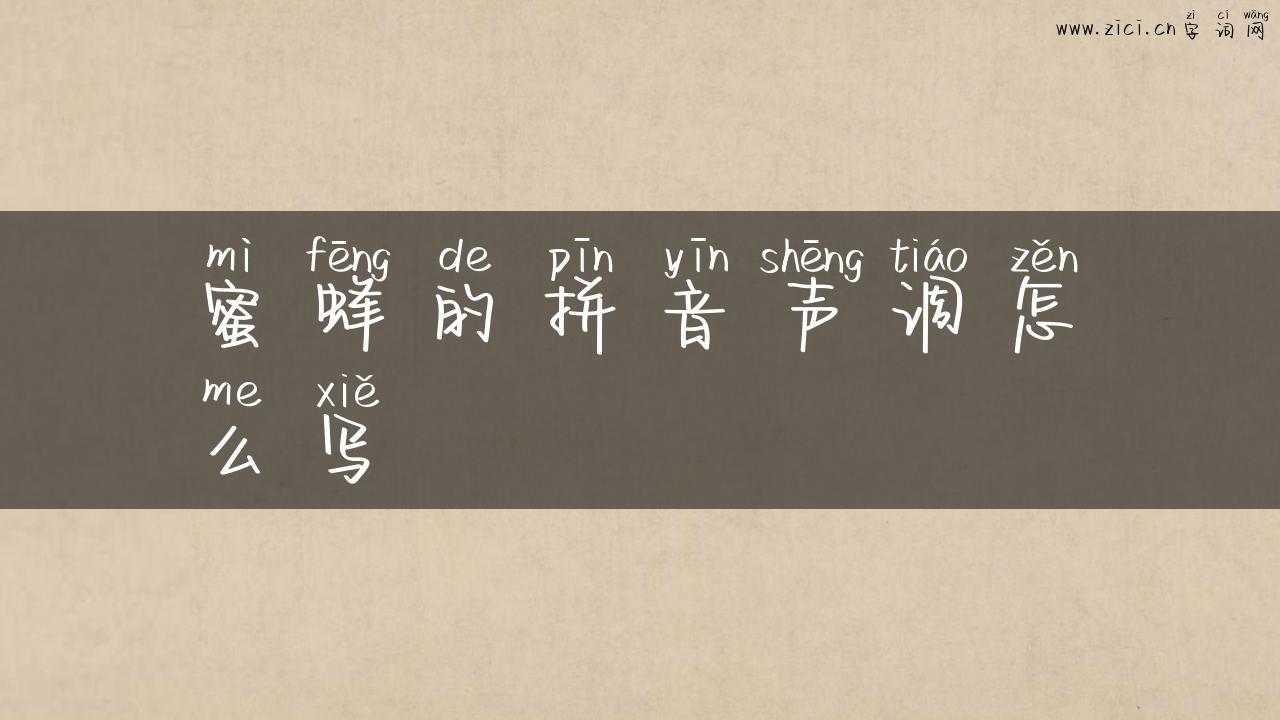 www.zici.cn 字词网
zì cí wǎng
mì fēng de pīn yīn shēng tiáo zěn
蜜蜂的拼音声调怎
me xiě
么写